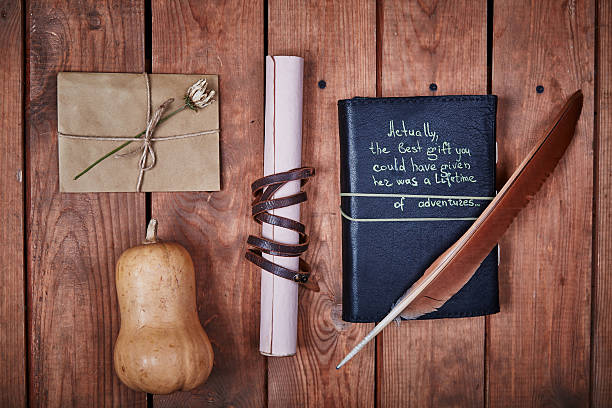 Actually,
the Best gift you
could have given
her was a Lifetime
of adventures...